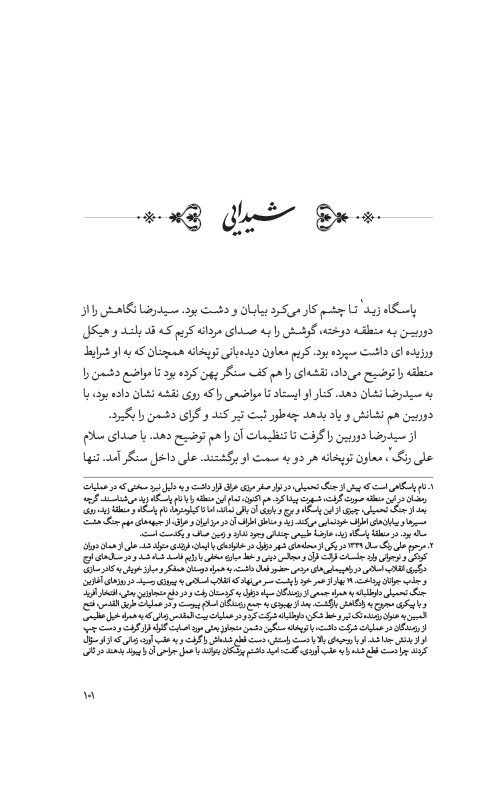 شیدایی
پاسگاه زید۱ تا چشم کار می‌کرد بیابان و دشت بود. سیدرضا نگاهش را از
دوربین به منطقه دوخته، گوشش را به صدای مردانه کریم که قد بلند و هیکل
ورزیده ای داشت سپرده بود. کریم معاون دیده‌بانی توپخانه همچنان که به او شرایط
منطقه را توضیح می‌داد، نقشه‌ای را هم کف سنگر پهن کرده بود تا مواضع دشمن را
به سیدرضا نشان دهد. کنار او ایستاد تا مواضعی را که روی نقشه نشان داده بود، با
دوربین هم نشانش و یاد بدهد چه‌طور ثبت تیر کند و گرای دشمن را بگیرد.
از سیدرضا دوربین را گرفت تا تنظیمات آن را هم توضیح دهد. با صدای سلام
علی رنگ۲، معاون توپخانه هر دو به سمت او برگشتند. علی داخل سنگر آمد. تنها
۱. نام پاسگاهی است که پیش از جنگ تحمیلی، در نوار صفر مرزی عراق قرار داشت و به دلیل نبرد سختی که در عملیات
رمضان در این منطقه صورت گرفت، شهرت پیدا کرد. هم اکنون، تمام این منطقه را با نام پاسگاه زید می‌شناسند. گرچه
بعد از جنگ تحمیلی، چیزی از این پاسگاه و برج و باروی آن باقی نماند، اما تا کیلومترها، نام پاسگاه و منطقهٔ زید، روی
مسیرها و بیابان‌های اطراف خودنمایی می‌کند. زید و مناطق اطراف آن در مرز ایران و عراق، از جبهه‌های مهم جنگ هشت
ساله بود. در منطقهٔ پاسگاه زید، عارضهٔ طبیعی چندانی وجود ندارد و زمین صاف و یکدست است.
۲. مرحوم علی رنگ سال ۱۳۳۹ در یکی از محله‌های شهر دزفول، در خانواده‌ای با ایمان، فرزندی متولد شد. علی از همان دوران
کودکی و نوجوانی وارد جلسات قرائت قرآن و مجالس دینی و خط مبارزه مخفی با رژیم فاسد شاه شد و در سال‌های اوج
درگیری انقلاب اسلامی در راهپیمایی‌های مردمی حضور فعال داشت، به همراه دوستان همفکر و مبارز خویش به کادر سازی
و جذب جوانان پرداخت. ۱۹ بهار از عمر خود را پشت سر می‌نهاد که انقلاب اسلامی به پیروزی رسید. در روزهای آغازین
جنگ تحمیلی داوطلبانه به همراه جمعی از رزمندگان سپاه دزفول، به کردستان رفت و در دفع متجاوزین بعثی، افتخار آفرید
و با پیکری مجروح به زادگاهش بازگشت. بعد از بهبودی به جمع رزمندگان اسلام پیوست و در عملیات طریق القدس، فتح
المبین به عنوان رزمنده تک تیر و خط شکن، داوطلبانه شرکت کرد و در عملیات بیت المقدس زمانی که به همراه خیل عظیمی
از رزمندگان در عملیات شرکت داشت، با توپخانه سنگین دشمن متجاوز بعثی مورد اصابت گلوله قرار گرفت و دست چپ
او از بدنش جدا شد. او با روحیه‌ای بالا با دست راستش، دست قطع شده‌اش را گرفت و به عقب آورد، زمانی که از او سؤال
کردند چرا دست قطع شده را به عقب آوردی، گفت: امید داشتم پزشکان بتوانند با عمل جراحی آن را پیوند بدهند در ثانی
۱۰۱